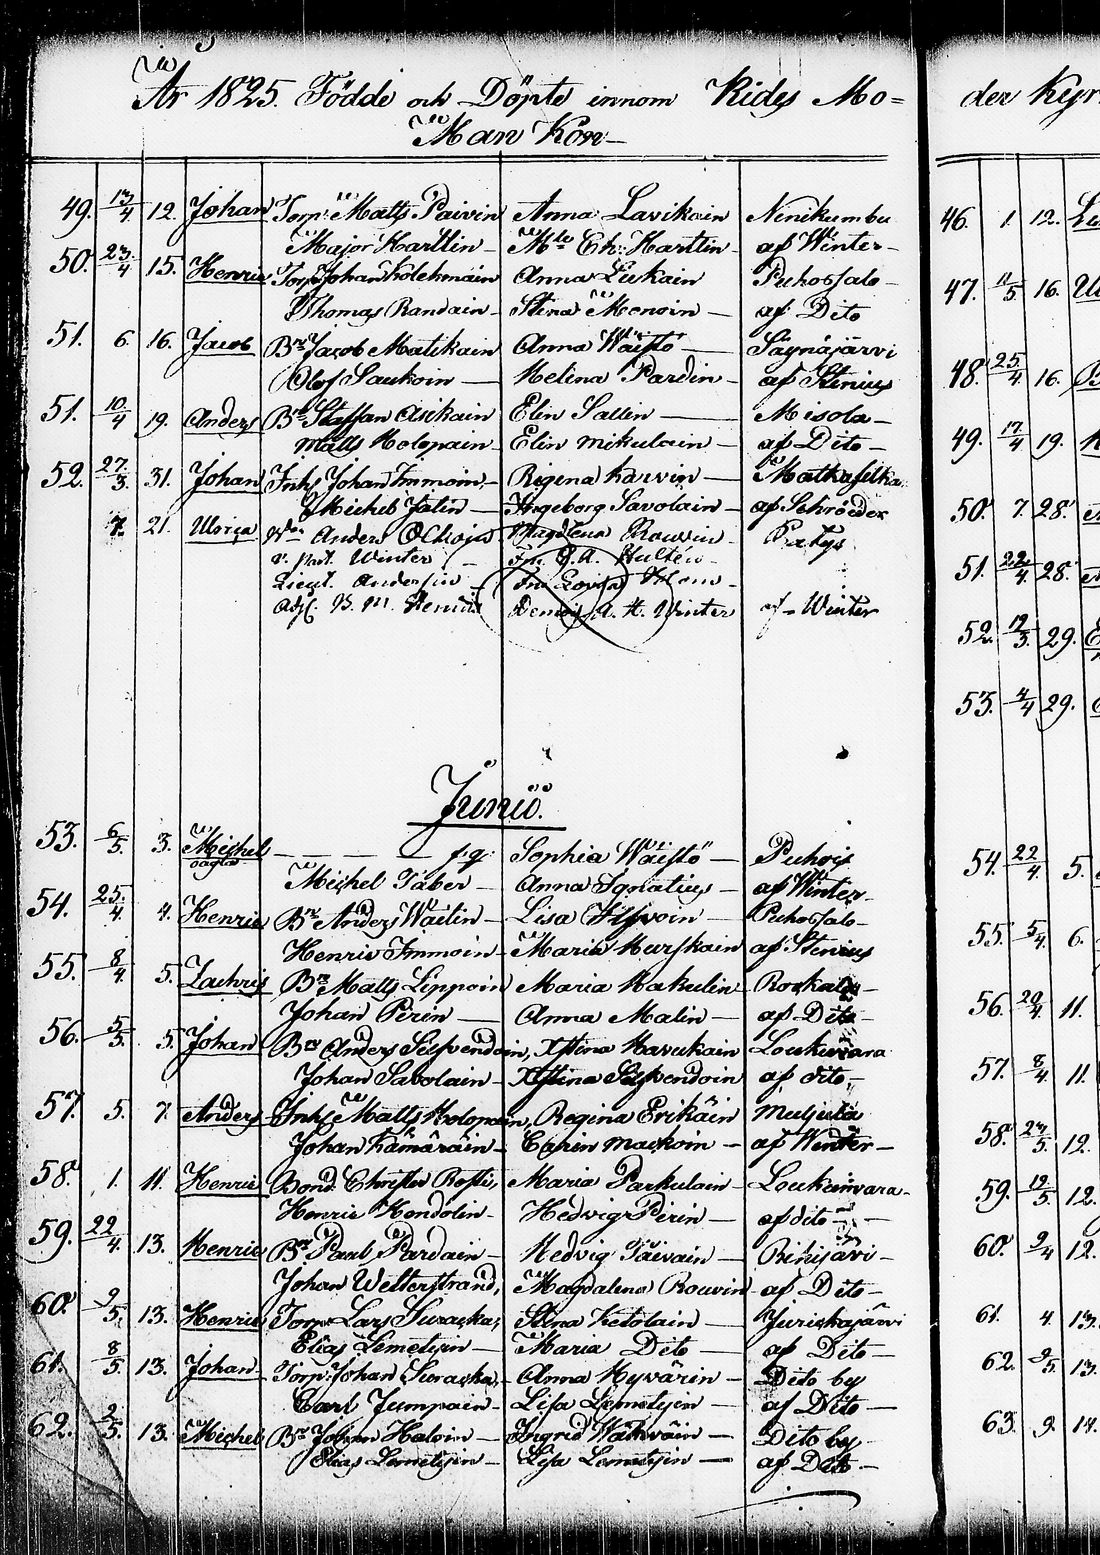 År 1825. Födde och Döpte innom Kides Mo=
Man Kön
49. 13/4 12. Johan Torp: Matts Paivin Anna Lavikain Nenikumbu
Major Harttin Mll Eh: Harttin af Winter
50. 23/4 15. Henric Torp: Johan Kolehmain Anna Liukain Puhossalo
Thomas Randain Stina Menoin af Dito
51. 6 16. Jacob Br Jacob Matikain Anna Wäistö Säynäjärvi
Olof Saukoin Helena Pardin af Stenius
51. 10/4 19. Anders Br Staffan Asikain Elin Sallin Misola
Matts Holopain Elin Mikulain af Dito
52. 27/3. 31. Johan Inhs Johan Immoin Regina Karvin Matkaselka
Michel Jalin Ingeborg Savolain af Schröeder
7. 21. Ulrica Anders Magdlena Rouvin
v. Past. Winter Fru G. A. Hultén
Lieut. Andersin Fru Lovisa
Adj. B. M. A. H. Winter af Winter
Junii.
53. 6/5. 3. Michel Sophia Wäistö Puhois
oägta
Michel Taber Anna Ignatius af Winter
54. 25/4. 4. Henric Br Anders Wäitin Lisa Puhossalo
Henric Immoin Maria Hurskain af Stenius
55. 8/4 5. Zachris Br Matts Lippoin Maria Makulin
Johan Perin Anna Malin af Dito
56. 5/5. 5. Johan Br Anders Silfvendoin, Xstina Havukain Loukunvara
Johan Savolain Xstina Silfvendoin af dito
57. 5. 7. Anders Inhs Matts Holopain, Regina Erikäin Muljula
Johan Kämäräin Carin Mackoin af Winter
58. 1. 11. Henric Bond. Christer Rosti, Maria Parkulain Loukunvara
Henric Hendolin Hedvig Perin af dito
59. 22/4. 13. Henric Br Paul Pardain Hedvig Päivain Rihijärvi
Johan Wetterstrand, Magdalena Rouvin af Dito
60. 9/5. 13. Henric Torp: Lars Suraska, Stina Ketolain Juriskajärvi
Elias Lemetyin Maria Dito af Dito
61. 8/5. 13. Johan Torp: Johan Suraska, Anna Hyvärin Dito by
Carl Jumpain Lisa Lemetyin af Dito
62. 2/5. 13. Michel Br Johan Haloin Ingrid Wäkeväin Dito by
Elias Lemetyin Lisa Lemetyin af Dito
der Kyr
46. 1. 12.
47. 11/5 16.
48. 25/4 16.
49. 17/4 19.
50. 7. 28.
51. 22/4 28.
52. 12/3. 29.
53. 4/4 29.
54. 22/4 5.
55. 5/4. 6.
56. 20/4. 11.
57. 8/4. 11.
58. 23/5. 12.
59. 12/5 12.
60. 2/4 12.
61. 4. 13.
62. 9/5. 13.
63. 9. 14.